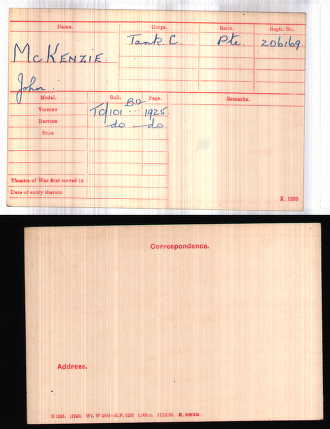 Name. Corps. Rank. Regtl. No.
McKenzie Tank C. Pte. 206169.
John.
Medal. Roll. Page. Remarks.
Victory TC/101 B2 1925
British do do
Star
Theatre of War first served in
Date of entry therein
K. 1380
Correspondence.
Address.